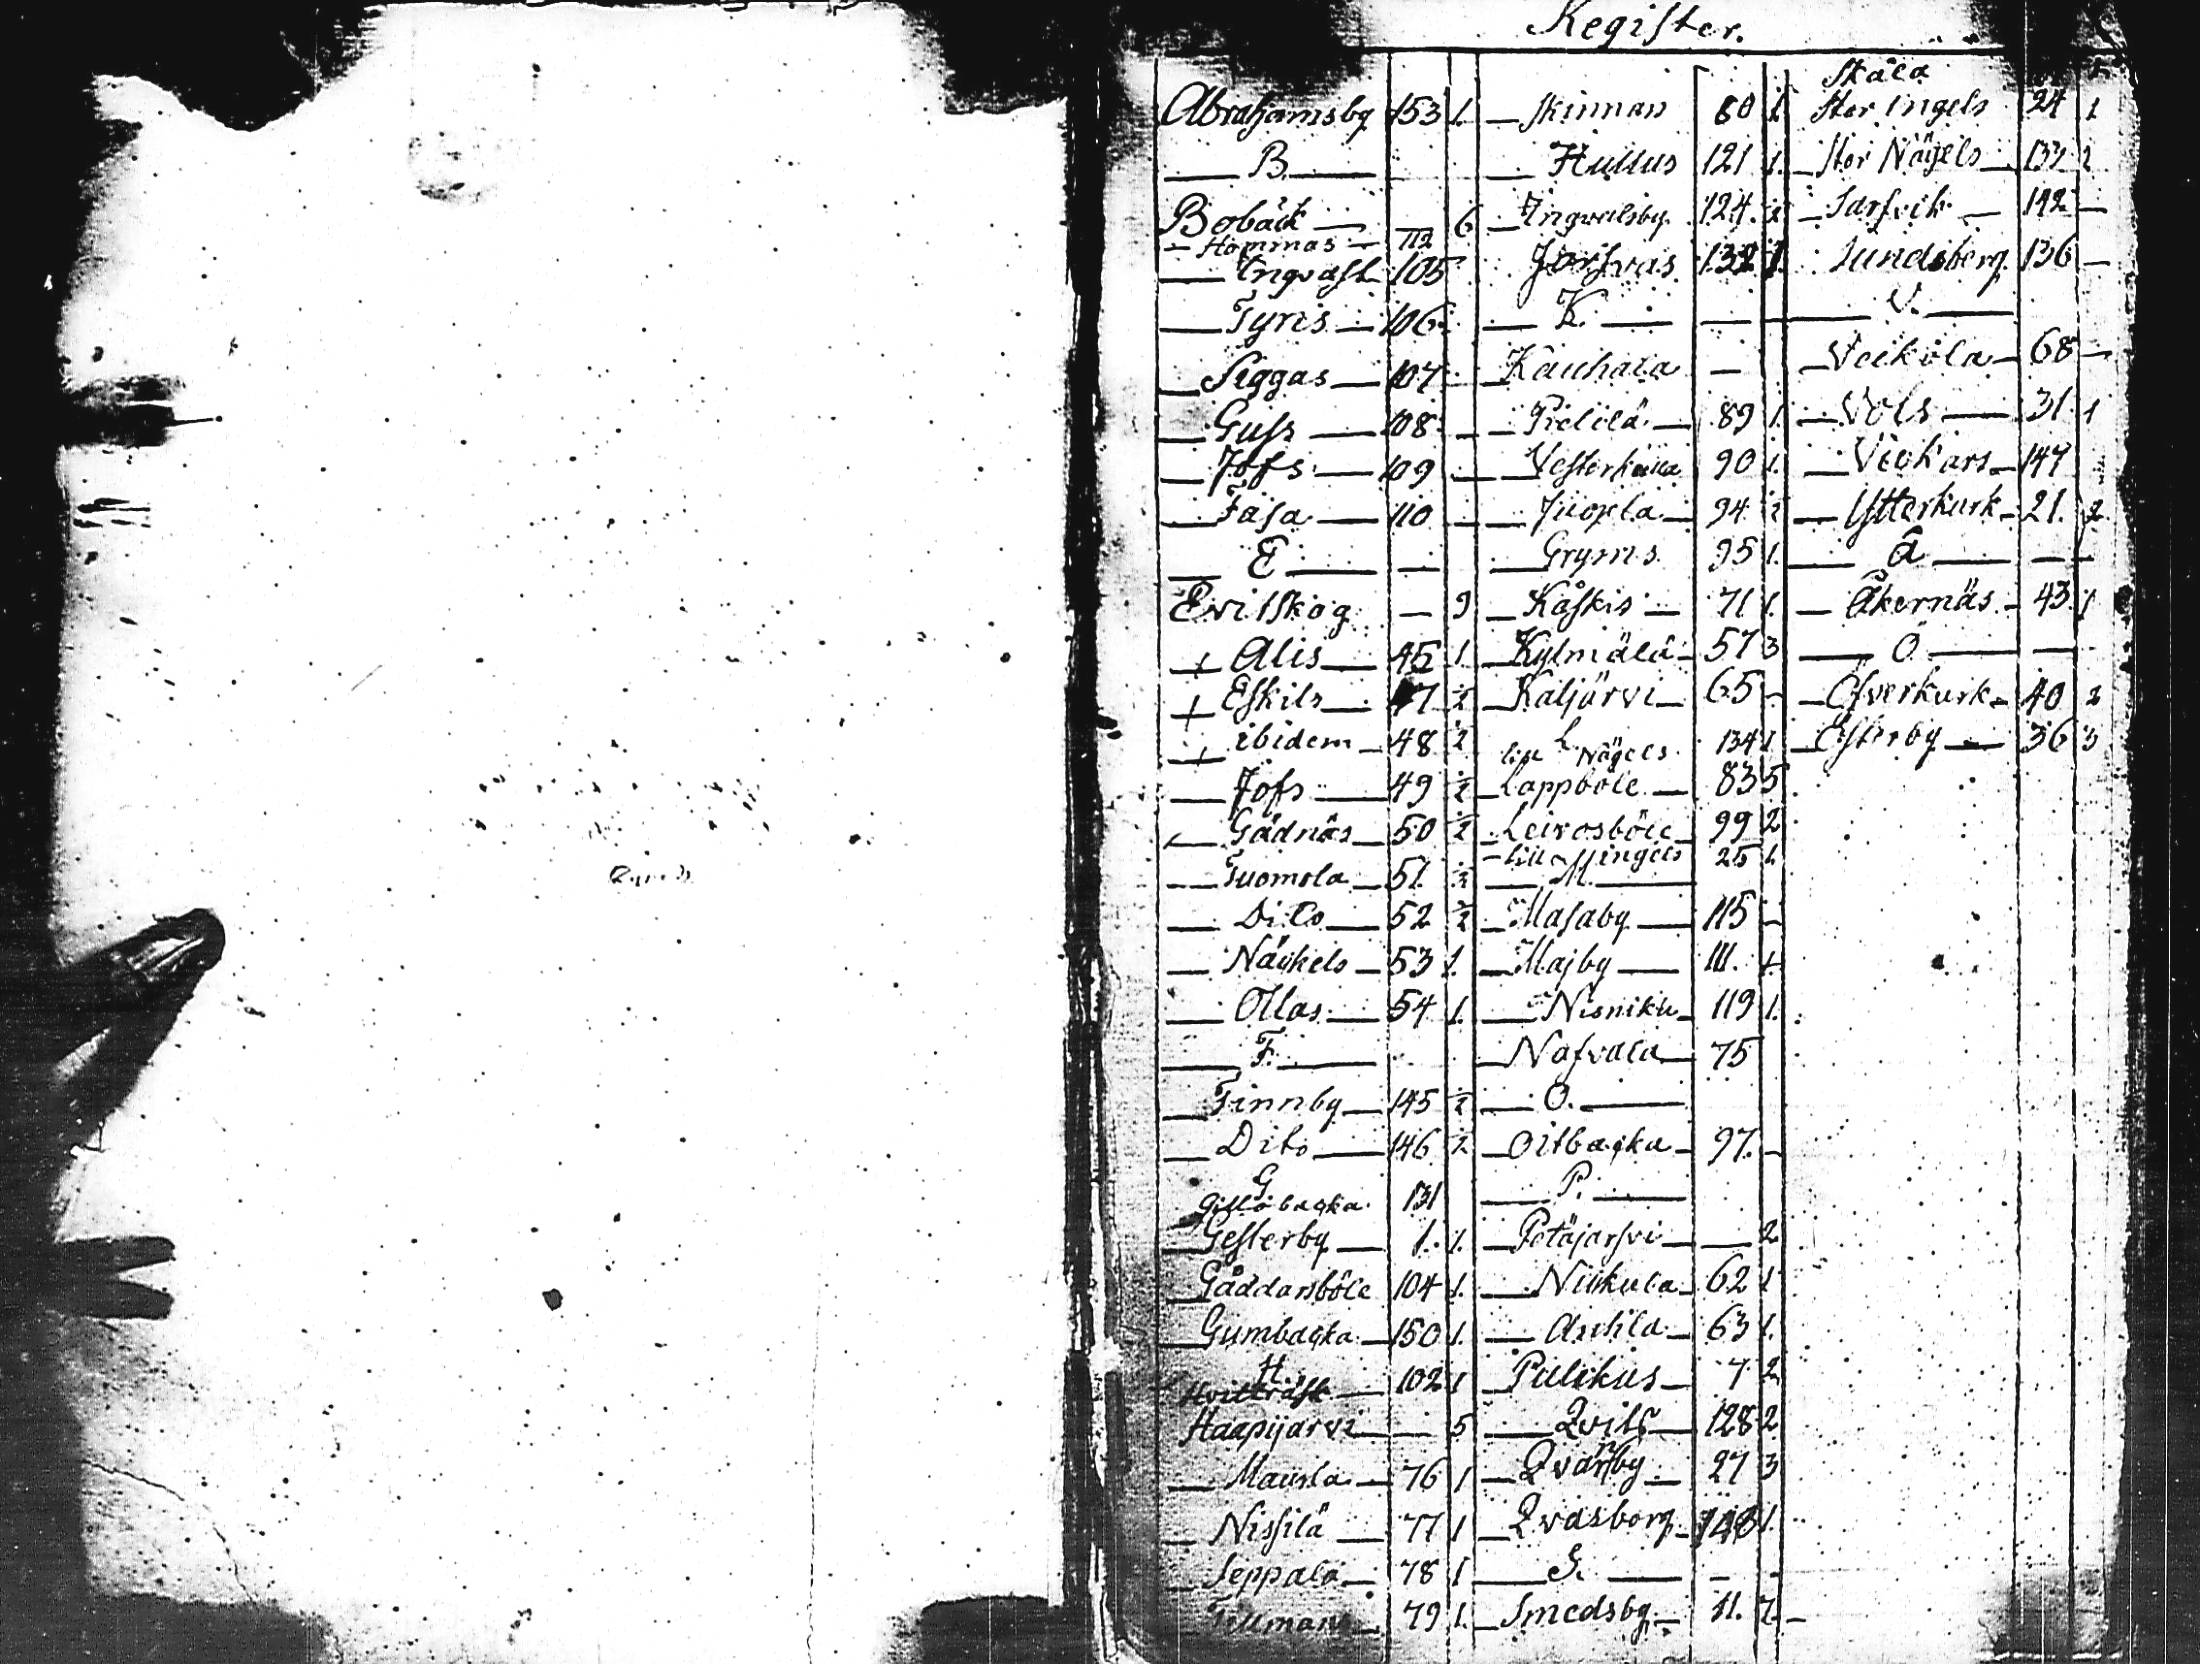 Register.
Abrahamsby 153 1.
B.
Bobäck — — 6
— Hommas — 112
— Ingvalls 105
— Fyrns — 106
— Siggas — 107
— Guss — 108
— Jofs — 109
— Fasa — 110
— E — —
Evitskog — 9
+ Alis — 45 1
+ Eskils — 47 ½
+ ibidem — 48 ½
— Jofs — 49 ½
— Gädnäs — 50 ½
— Tuomola — 51 ½
— Dito — 52 ½
— Näckels — 53 1.
— Ollas — 54 1.
— F. —
— Finnby — 145 ½
— Dito — 146 ½
G
Gillobacka 131
— Gesterby — 1. 1.
— Gåddarsböle 104 1.
— Gumbacka — 150 1.
H.
Hvitträsk — 102 1
Haapijarvi — — 5
— Mausla — 76 1
— Nissilä — 77 1
— Seppala — 78 1
— Tillman — 79 1.
— Skinnars 80 1.
— Hullus 121 1.
— Ingvalsby 124. 2
Jorfvas 132 1.
— K. — —
— Kauhala —
— Pielilä — 89 1.
— Vesterkulla 90 1.
— Juopela — 94 2
— Gryms 95 1.
— Kåskis — 71 1.
— Kylmälä — 57 3
— Kaljärvi — 65 —
L
lill Nägels 134 1
— Lappböle — 83 5
— Leirosböle — 99 2
— lill ingels 25 1.
— M. —
— Masaby — 115 —
— Majby — 111. 1.
— Nisniku — 119 1.
— Nafvala — 75
— O. —
— Oitbacka — 97. —
— P. —
— Petäjarfvi — — 2
— Niskula — 62 1
— Anhila — 63 1.
— Pulikus — 7 2
— Qvits — 128 2
— Qvarnby — 27 3
— Qvasborg — 148 1.
— S. — —
— Smedsby — 11. 7.
Skåla
Stor ingels 24 1
— Stor Nägels — 133 1
— Sarfvik — 142 —
Sundsberg 136 —
— V. —
— Veikola — 68 —
— Vols — 31 1
— Vickars — 147
— Ytterkurk — 21. 2
— Å — —
— Åkernäs — 43. 1
— Ö — —
— Öfverkurk — 40 2
— Österby — 36 3